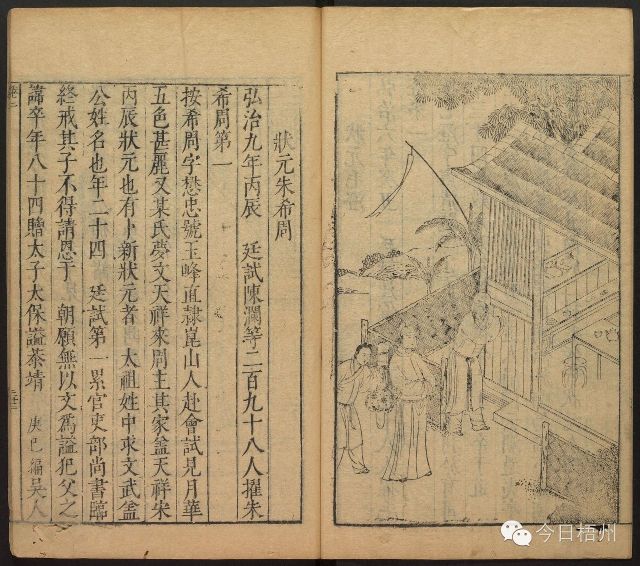 狀元朱希周
弘治九年丙辰　廷試陳瀾等二百九十八人擢朱
希周第一
按希周字懋忠號玉峰直隸崑山人赴會試見月華
五色甚麗又某氏夢文天祥來周主其家葢天祥宋
丙辰狀元也有卜新狀元者　太祖姓中求文武葢
公姓名也年二十四　廷試第一累官吏部尚書臨
終戒其子不得請恩于　朝願無以文爲謚犯父之
諱卒年八十四贈太子太保謚恭靖　庚巳編吳人
今日梧州